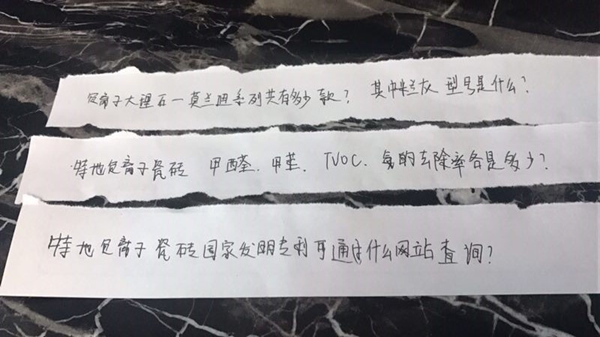 负离子大理石一莫兰迪系列共有多少款? 其中兰灰 型号是什么?
特地负离子瓷砖 甲醛、甲苯、TVOC、氨的去除率各是多少?
特地负离子瓷砖国家发明专利可通过什么网站查询?